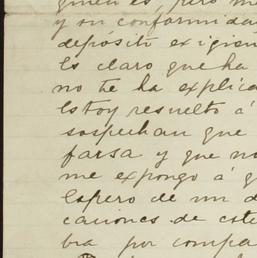 pero me
y su conformidad
depósito exigien
Es claro que ha
no te ha explica
Estoy resuelto á
sospechan que
farsa y que no
me expongo á q
Espero de un d
caciones de este
bra por compa